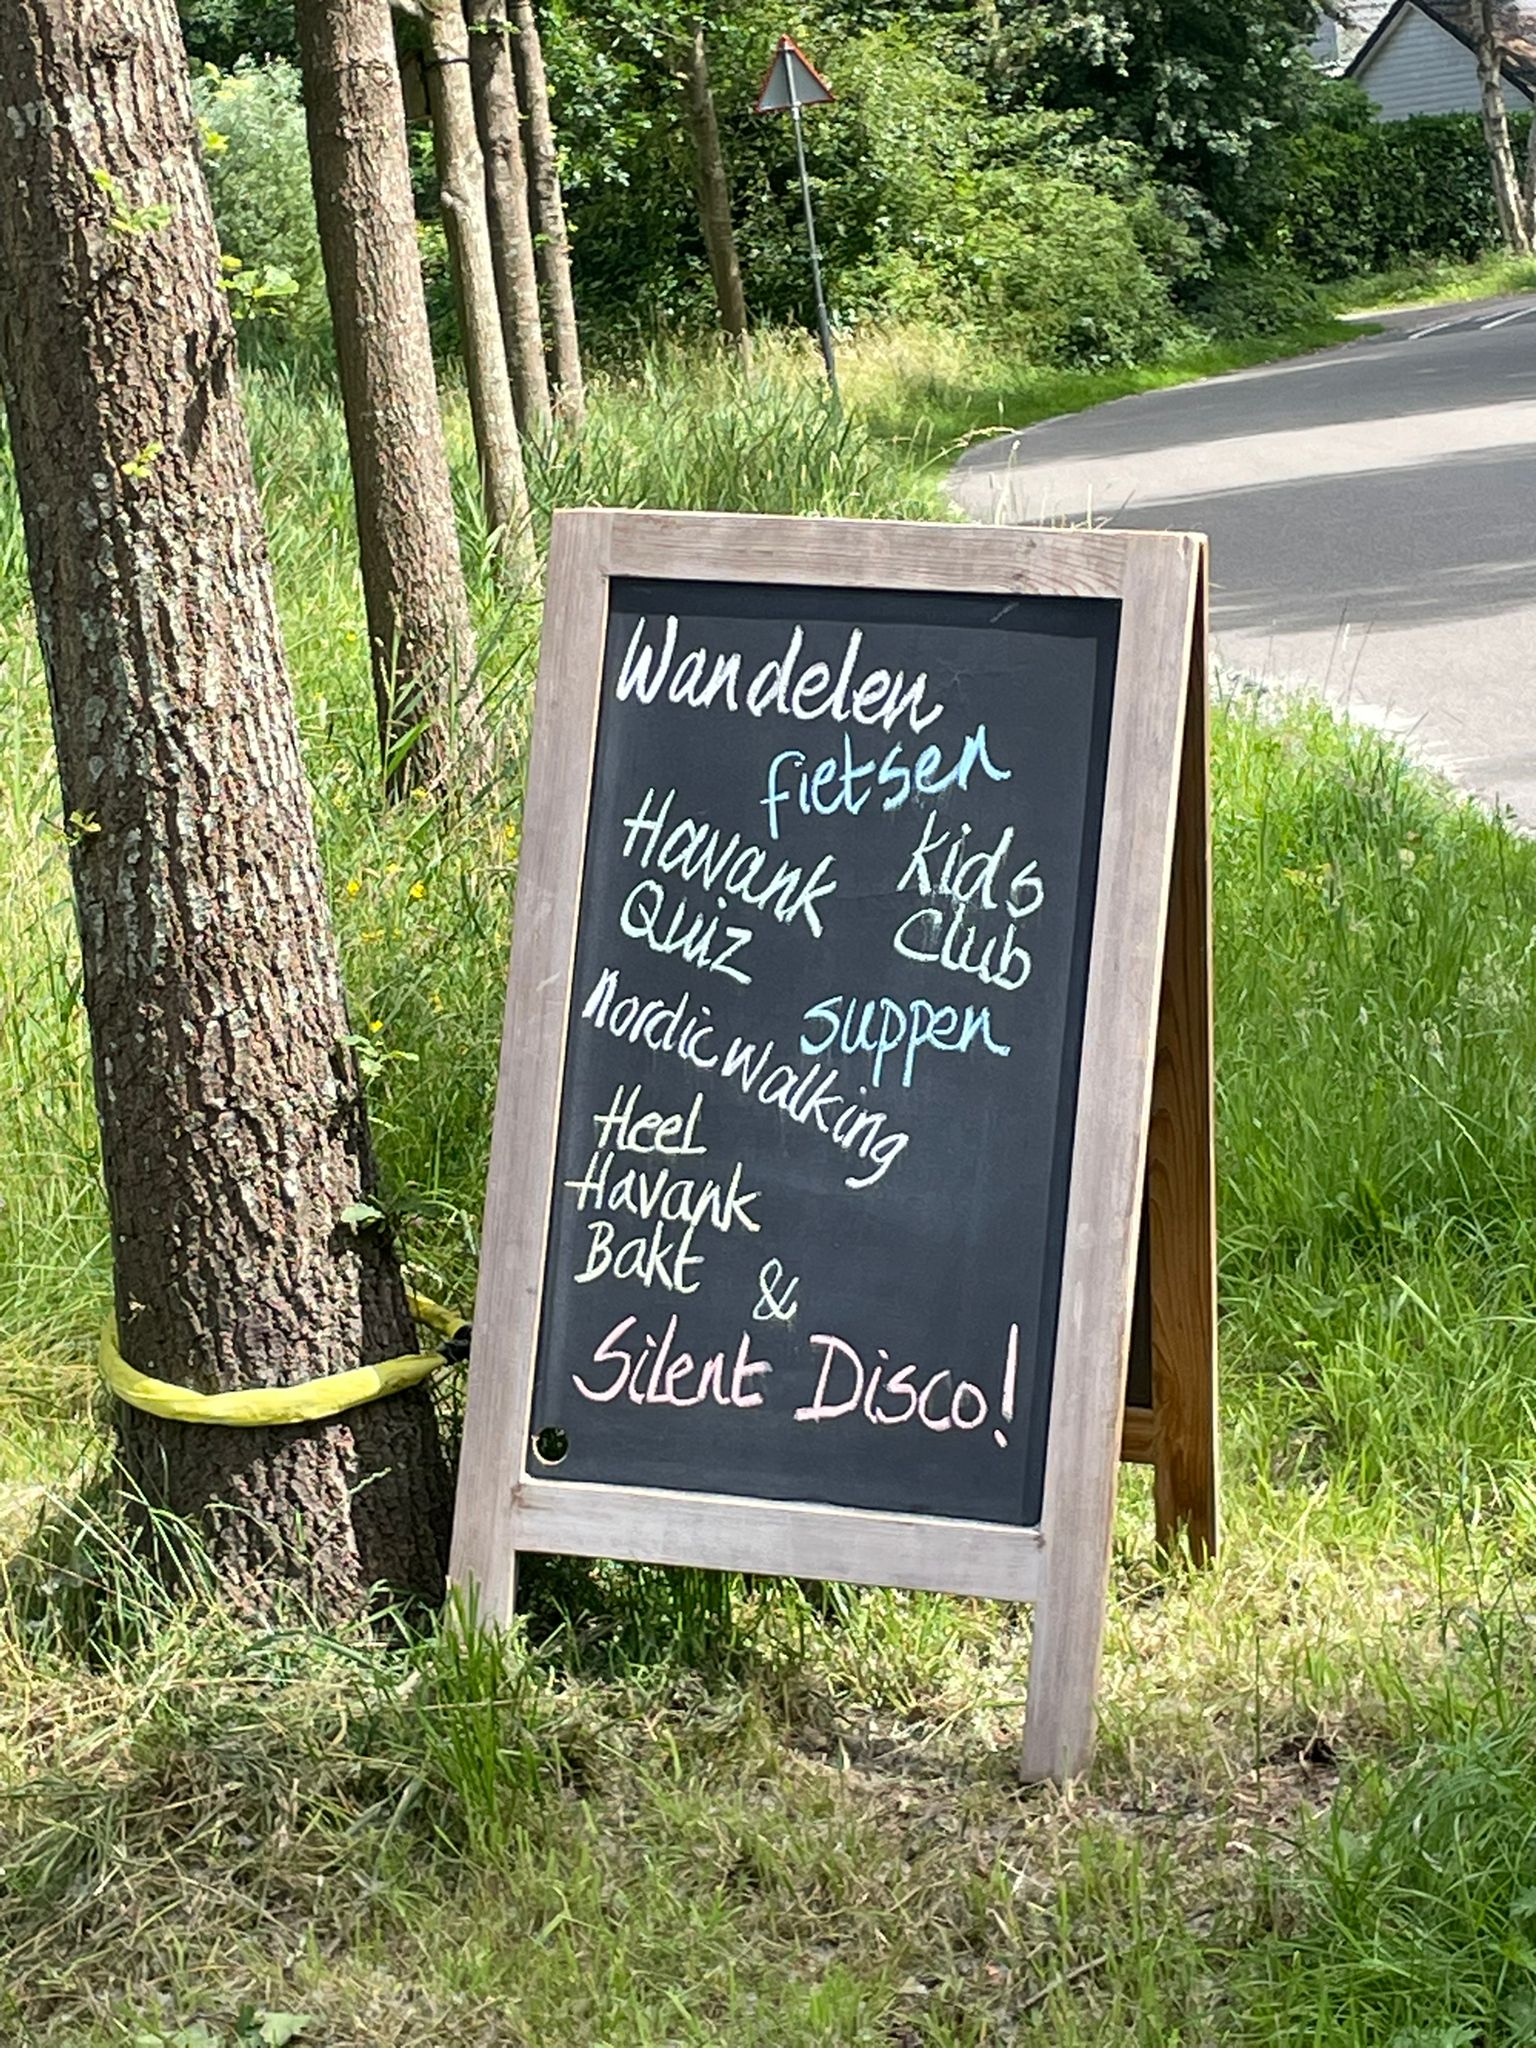 Wandelen
fietsen
Havank
Quiz
Kids
Club
suppen
Nordic walking
Heel
Havank
Bakt &
Silent Disco!